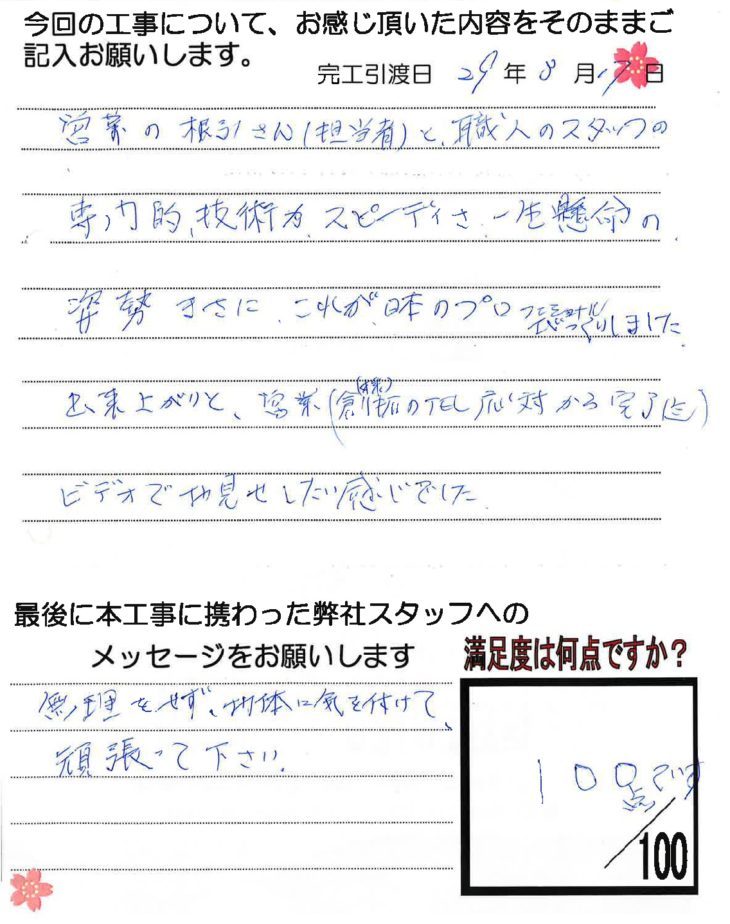 今回の工事について、お感じ頂いた内容をそのままご
記入お願いします。
完工引渡日 29年8月17日
営業の根引さん(担当者)と、職人のスタッフの
専門的、技術力、スピーディさ、一生懸命の
姿勢まさに、これが、日本のプロフェショナル しました
出来上がりと、営業(創拓(株)のTEL応対から完了迄)
ビデオでお見せしたい感じでした。
最後に本工事に携わった弊社スタッフへの
メッセージをお願いします
無理をせず、お体に気を付けて、
頑張って下さい。
満足度は何点ですか?
100点です
/100